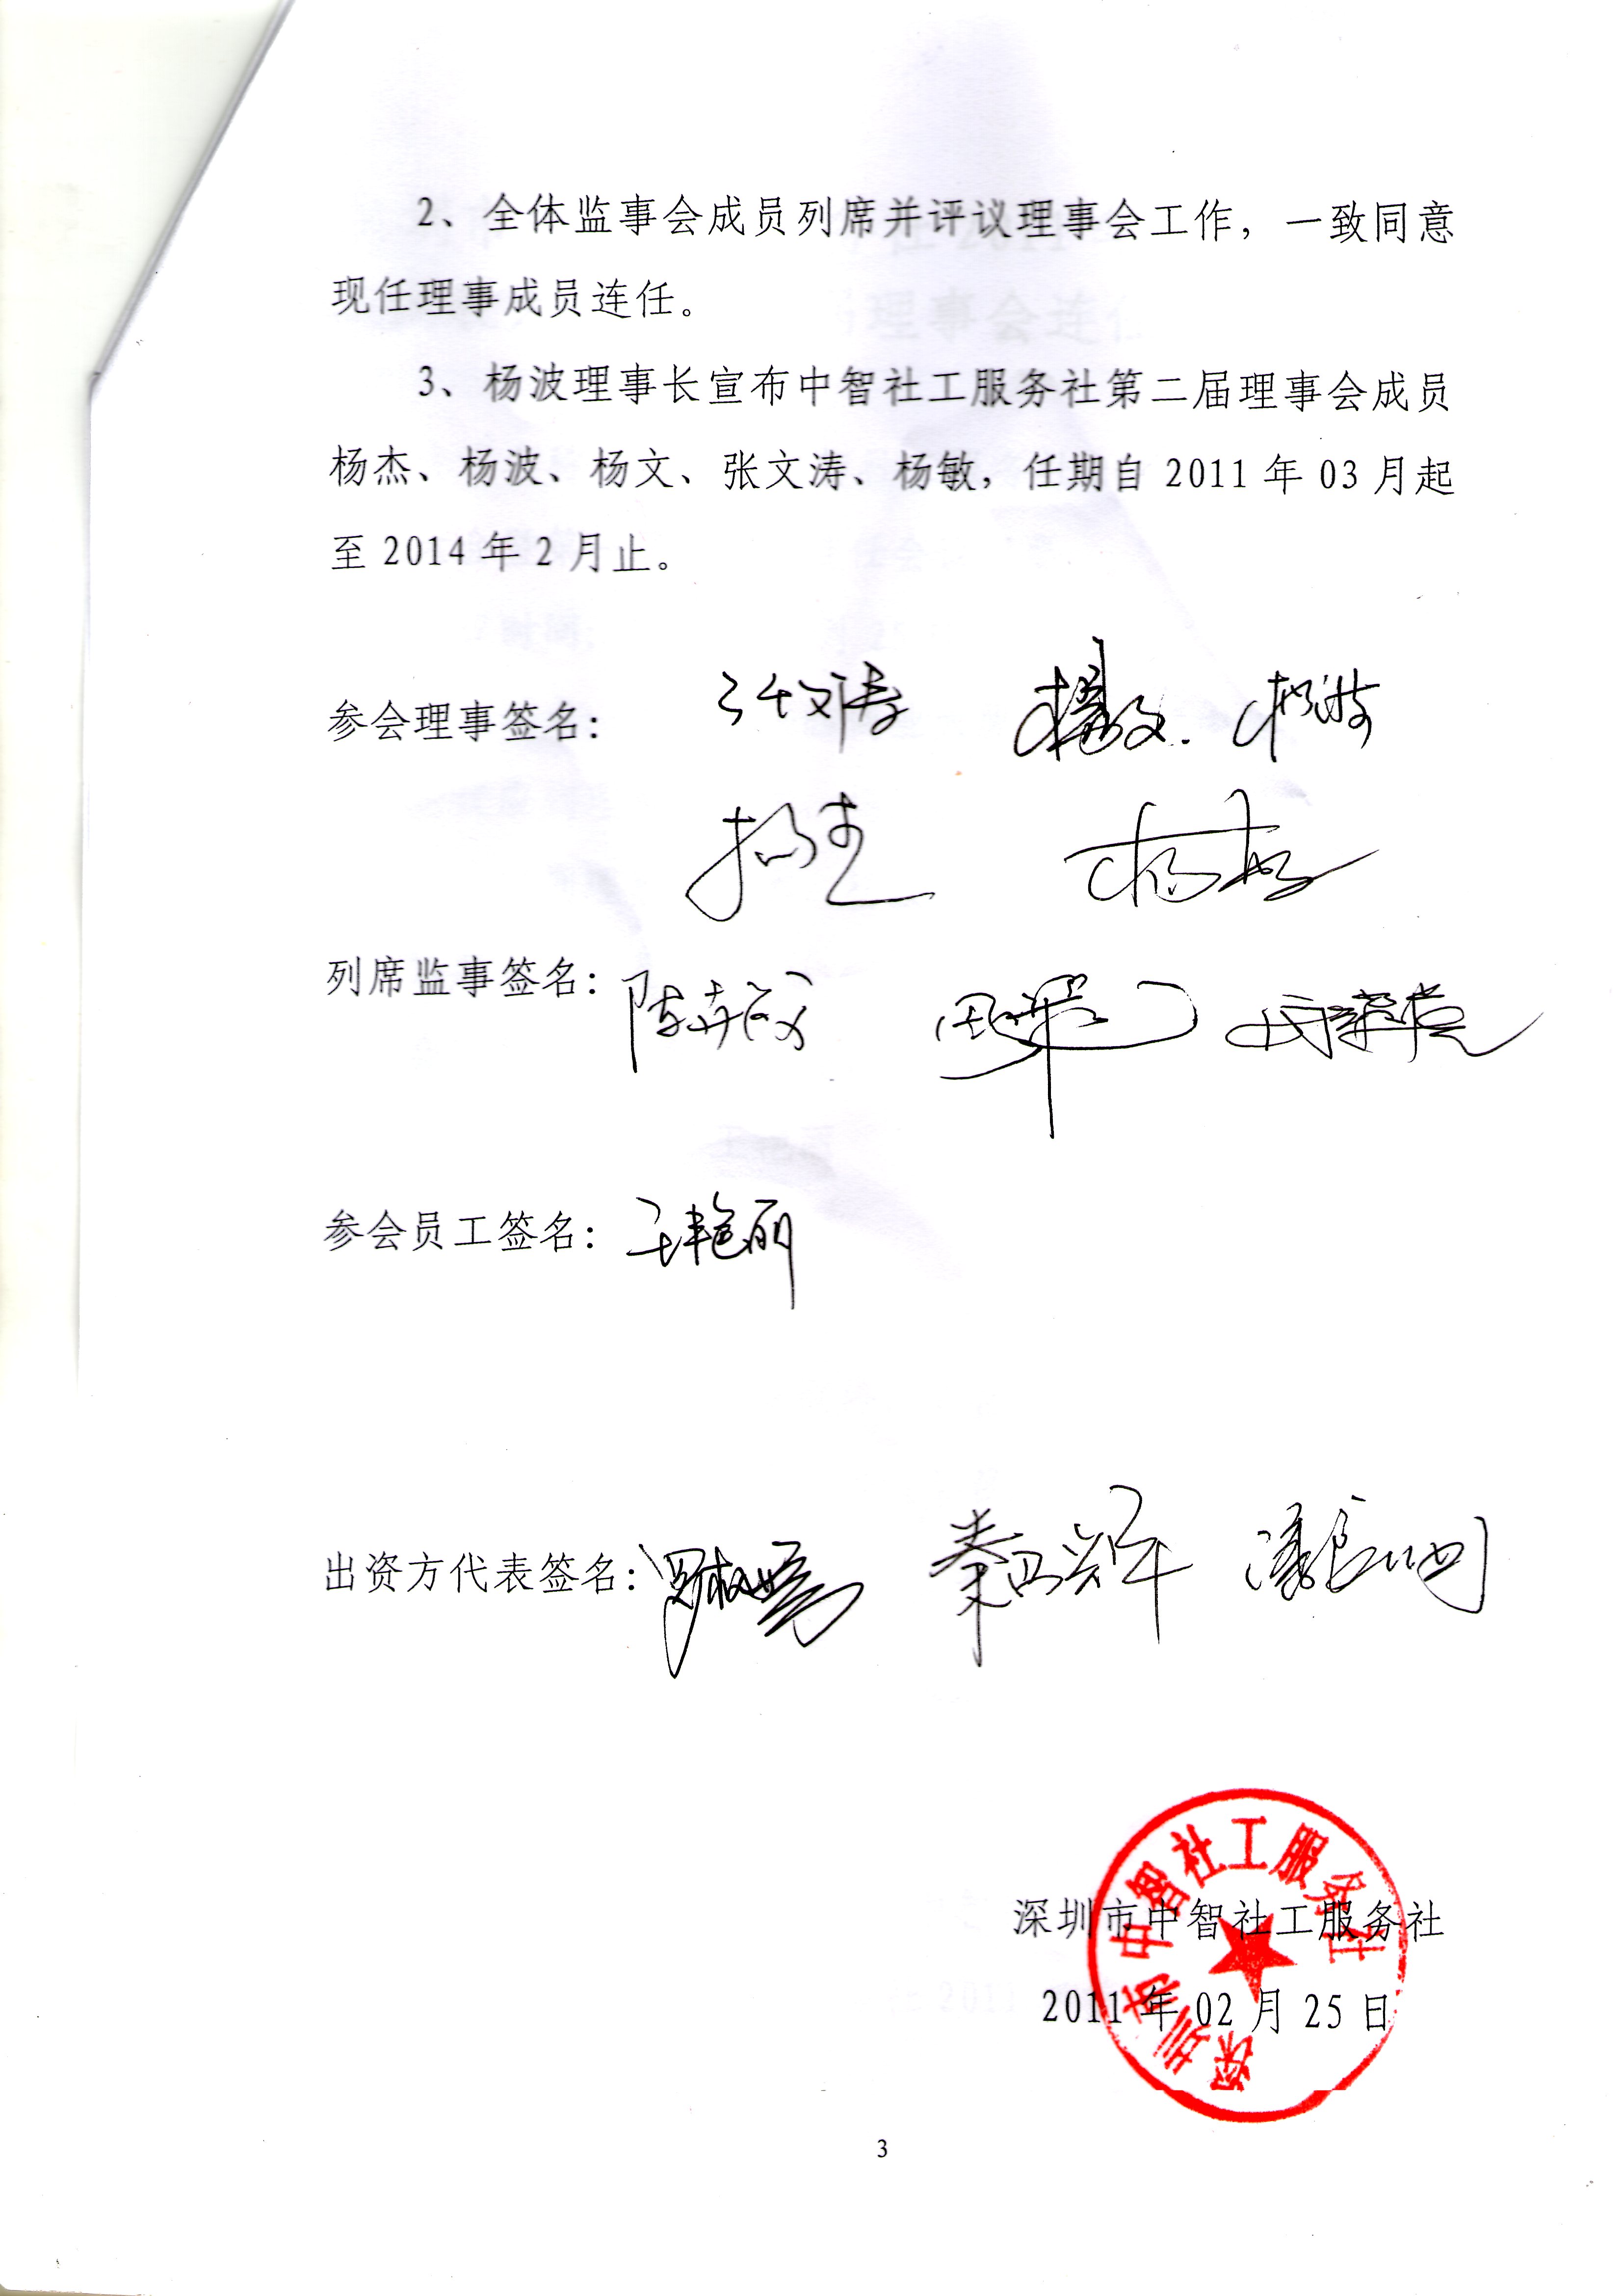 2、全体监事会成员列席并评议理事会工作，一致同意
现任理事成员连任。
3、杨波理事长宣布中智社工服务社第二届理事会成员
杨杰、杨波、杨文、张文涛、杨敏，任期自 2011 年 03 月起
至 2014 年 2 月止。
参会理事签名： 张文涛 楊文 杨波
列席监事签名：
参会员工签名：王艳丽
出资方代表签名：
深圳市中智社工服务社
深圳市中智社工服务社
2011 年 02 月 25 日
3